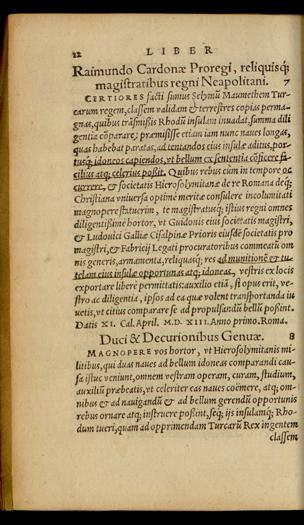 22 LIBER
Raimundo Cardonæ Proregi, reliquisq;
magistratibus regni Neapolitani. 7
CERTIORES facti sumus Selymū Maumethem Tur-
carum regem, classem validam & terrestres copias perma-
gnas, quibus trāsmissis Rhodū insulam inuadat, summa dili
gentia cōparare; præmisisse etiam iam nunc naues longas,
quas habebat paratas, ad tentandos eius insulæ aditus, por-
tusq; idoneos capiendos, vt bellum ex sententia cōficere fa-
cilius atq; celerius possit. Quibus rebus cùm in tempore oc
currere, & societatis Hierosolymitanæ de re Romana deq;
Christiana vniuersa optimè meritæ consulere incolumitati
magnopere statuerim, te magistratusq; istius regni omnes
diligentissimè hortor, vt Guidonis eius societatis magistri,
& Ludouici Galliæ Cisalpinæ Prioris eiusdē societatis pro
magistri, & Fabricij Legati procuratoribus commeatū om
nis generis, armamenta, reliquasq; res ad munitionē & tu-
telam eius insulæ opportunas atq; idoneas, vestris ex locis
exportare liberè permittatis: auxilio etiā, si opus erit, ve-
stro ac diligentia, ipsos ad ea quæ volent transportanda iu
uetis, vt citius comparare se ad propulsandū bellū possint.
Datis XI. Cal. April. M. D. XIII. Anno primo. Roma.
Duci & Decurionibus Genuæ. 8
MAGNOPERE vos hortor, vt Hierosolymitanis mi-
litibus, qui duas naues ad bellum idoneas comparandi cau-
sa istuc veniunt, omnem vestram operam, curam, studium,
auxiliū præbeatis, vt celeriter eas naues coëmere, atq; om-
nibus & ad nauigandū & ad bellum gerendū opportunis
rebus ornare atq; instruere possint, seq; ijs insulamq; Rho-
dum tueri, quam ad opprimendam Turcarū Rex ingentem
classem